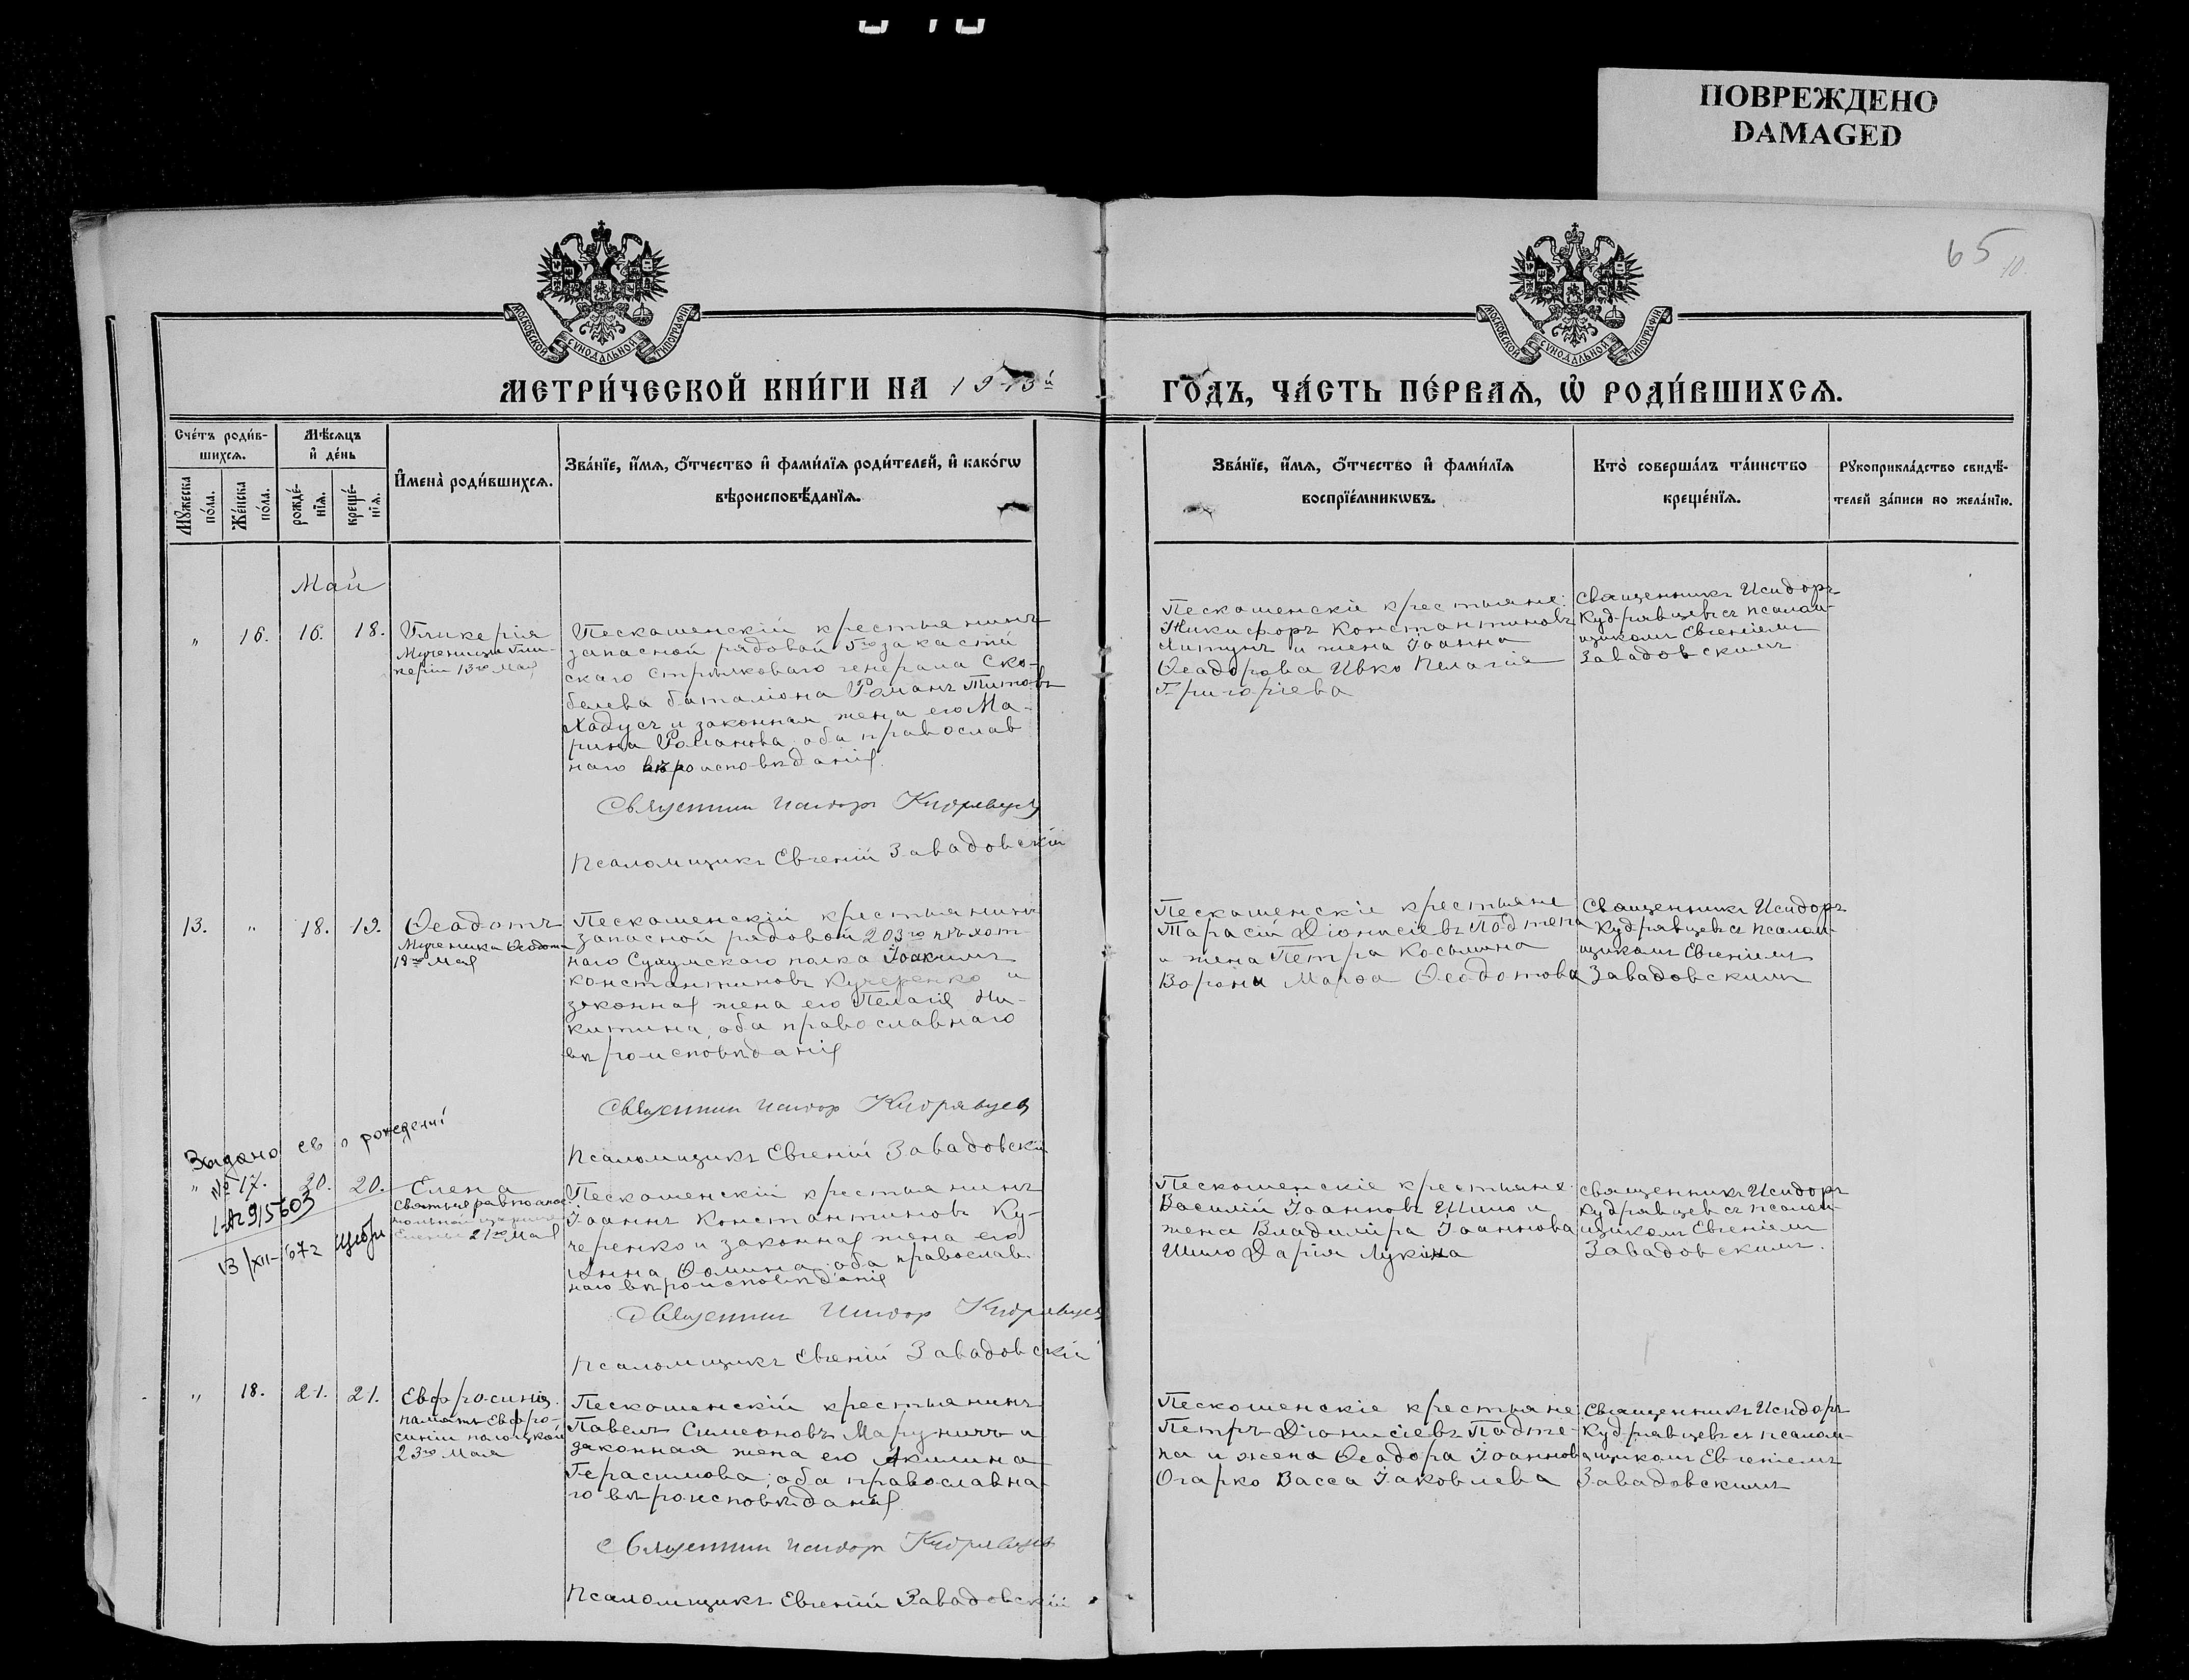 ПОВРЕЖДЕНО
DAMAGED
65
10.
МОСКОВСКОЙ СУНОДАЛЬНОЙ ТИПОГРАФІИ
МОСКОВСКОЙ СУНОДАЛЬНОЙ ТИПОГРАФІИ
МЕТРИ́ЧЕСКОЙ КНИ́ГИ НА 1913й ГО́ДЪ, ЧА́СТЬ ПЕ́РВАѦ, Ѡ҆ РОДИ́ВШИХСѦ.
Сче́тъ роди́в-
шихсѧ.
Мѣ́сѧцъ
и҆ де́нь
Мꙋ́жеска
по́ла.
Же́нска
по́ла.
рожде́-
нїѧ.
креще́-
нїѧ.
И҆мена̀ роди́вшихсѧ.
Зва́нїе, и҆́мѧ, ѻ҆́тчество и҆ фами́лїѧ роди́телей, и҆ како́гѡ
вѣроисповѣ́данїѧ.
Зва́нїе, и҆́мѧ, ѻ҆́тчество и҆ фами́лїѧ
воспрїе́мникѡвъ.
Кто̀ соверша́лъ та́инство
креще́нїѧ.
Рꙋкоприкла́дство свидѣ́-
телей за́писи по жела́нїю.
Май
" 16. 16. 18.
Гликерія
Мученицы Гли-
керіи 13го Мая
Пескошенскій крестьянинъ
запасной рядовой 5го закаспій
скаго стрѣлковаго генерала Ско-
белева баталіона Романъ Титовъ
Хадусъ и законная жена его Ма-
рина Романова, оба православ
наго вѣроисповѣданія.
Священникъ Исидоръ Кудрявцевъ
Псаломщикъ Евгеній Завадовскій
Пескошенскіе крестьяне:
Никифоръ Константиновъ
и жена Іоанна
Ѳеодорова Ивко Пелагія
Григоріева
Священникъ Исидоръ
Кудрявцевъ съ псалом-
щикомъ Евгеніемъ
Завадовскимъ
13. " 18. 19.
Ѳеодотъ
Мученика Ѳеодота
18го Мая
Пескошенскій крестьянинъ
запасной рядовой 203го пѣхот
наго Сухумскаго полка Іоакимъ
Константиновъ Кучеренко и
законная жена его Пелагія Ни-
китина, оба православнаго
вѣроисповѣданія
Священникъ Исидоръ Кудрявцевъ
Псаломщикъ Евгеній Завадовскій
Пескошенскіе крестьяне
Тарасій Діонисіевъ Подтепа
и жена Петра Косьмина
Ворона Марѳа Ѳеодотова
Священникъ Исидоръ
Кудрявцевъ съ псалом-
щикомъ Евгеніемъ
Завадовскимъ
Выдано св о рождені
№
I-АГ 915603
13/XII-67г
" 17. 20. 20.
Елена
Святыя равноапос
тольной царицы
Елены 21го Мая
Пескошенскій крестьянинъ
Іоаннъ Константиновъ Ку-
черенко и законная жена его
Анна Ѳомина, оба православ-
наго вѣроисповѣданія
Священникъ Исидоръ Кудрявцевъ
Псаломщикъ Евгеній Завадовскій
Пескошенскіе крестьяне
Василій Іоанновъ Шило и
жена Владиміра Іоаннова
Шило Дарія Лукина
Священникъ Исидоръ
Кудрявцевъ съ псалом-
щикомъ Евгеніемъ
Завадовскимъ.
" 18. 21. 21.
Евфросинія.
память Евфро-
синіи полоцкой
23го Мая
Пескошенскій крестьянинъ
Павелъ Симеоновъ Маруничъ и
законная жена его Акилина
Герасимова, оба православна-
го вѣроисповѣданія.
Священникъ Исидоръ Кудрявцевъ
Псаломщикъ Евгеній Завадовскій
Пескошенскіе крестьяне
Петръ Діонисіевъ Падте-
па и жена Ѳеодора Іоаннова
Огарко Васса Іаковлева
Священникъ Исидоръ
Кудрявцевъ съ псалом-
щикомъ Евгеніемъ
Завадовскимъ